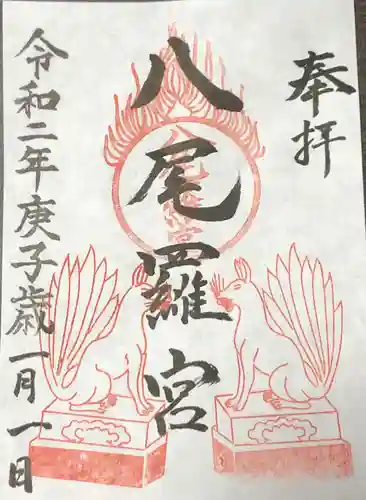 奉拝
八尾羅宮
令和二年庚子歳一月一日